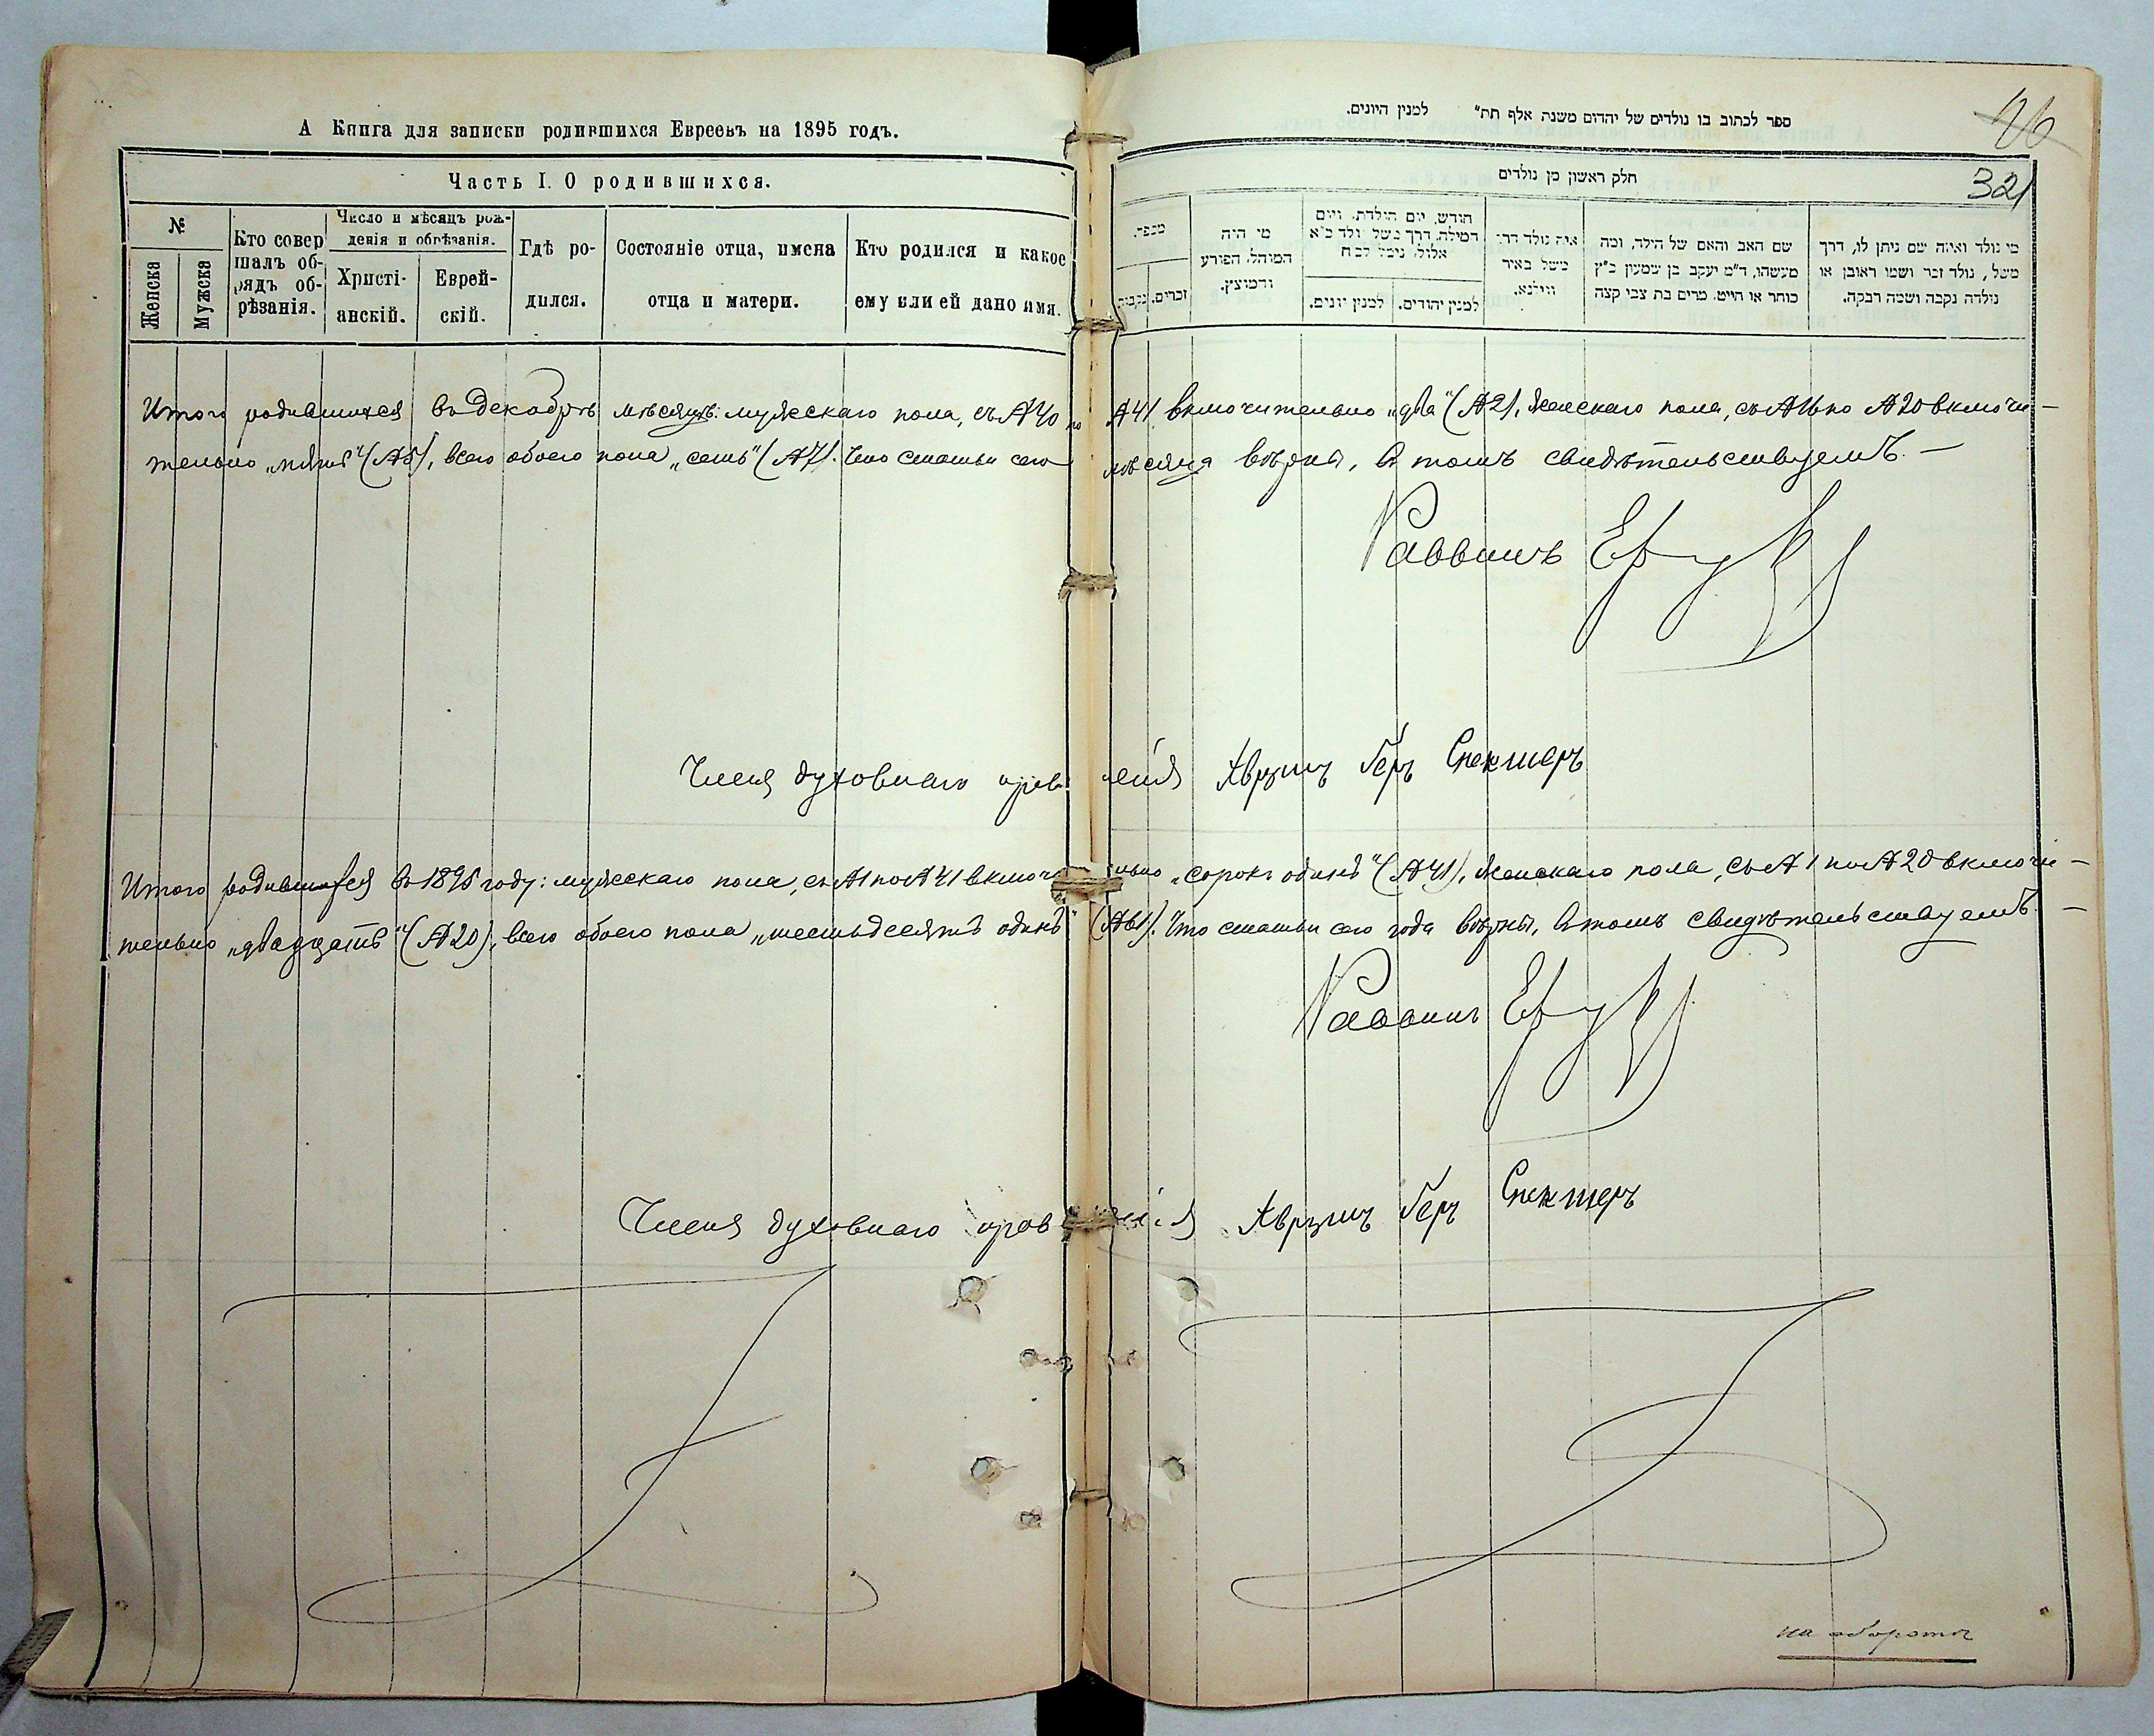 А Книга для записки родившихся Евреевъ на 1895 годъ.
Часть I. О родившихся.
№
Женска
Мужска
Кто совер
шалъ об-
рядъ об-
рѣзанія.
Число и мѣсяцъ рож-
денія и обрѣзанія.
Христі-
анскій.
Еврей-
скій.
Гдѣ ро-
дился.
Состояніе отца, имена
отца и матери.
Кто родился и какое
ему или ей дано имя.
ספר לכתוב בו נולדים של יהדום משנת אלף תת" למנין היונים.
26
321
חלק ראשון מן נולדים
מספר.
זכרים.
נקבות
מי היה
המוהל, הפורע
והמוצץ.
חודש, יום הולדת, ויום
המילה, דרך משל נולד כ"א
אלול, נימול כ"ח
למנין יונים.
למנין יהודים.
איה נולד דרך
משל באיר
ווילנא.
שם האב והאם של הילד, ומה
מעשהו, ד"מ יעקב בן שמעון כ"ץ
סוחר או חייט, מרים בת צבי קצה
מי נולד ואיזה שם ניתן לו, דרך
משל, נולד זכר ושמו ראובן או
נולדה נקבה ושמה רבקה.
Итого родившихся въ Декабрѣ мѣсяцѣ: мужескаго пола, съ № 40 по № 41 включительно „два" (№ 2), женскаго пола, съ № 16 по № 20 включи-
тельно „пять" (№ 5), всего обоего пола „семь" (№ 7). Что статьи сего мѣсяца вѣрны, въ томъ свидѣтельствуемъ. –
Раввинъ
Члена духовнаго правленія Авруmъ Беръ Спекторъ
Итого родившихся въ 1895 году: мужескаго пола, съ № 1 по № 41 включительно „сорокъ одинъ" (№ 41), женскаго пола, съ № 1 по № 20 включи-
тельно „двадцать" (№ 20), всего обоего пола „шестьдесятъ одинъ" (№ 61). Что статьи сего года вѣрны, въ томъ свидѣтельствуемъ. –
Раввинъ
Члена духовнаго правленія Аврумъ Беръ Спекторъ
на оборотѣ